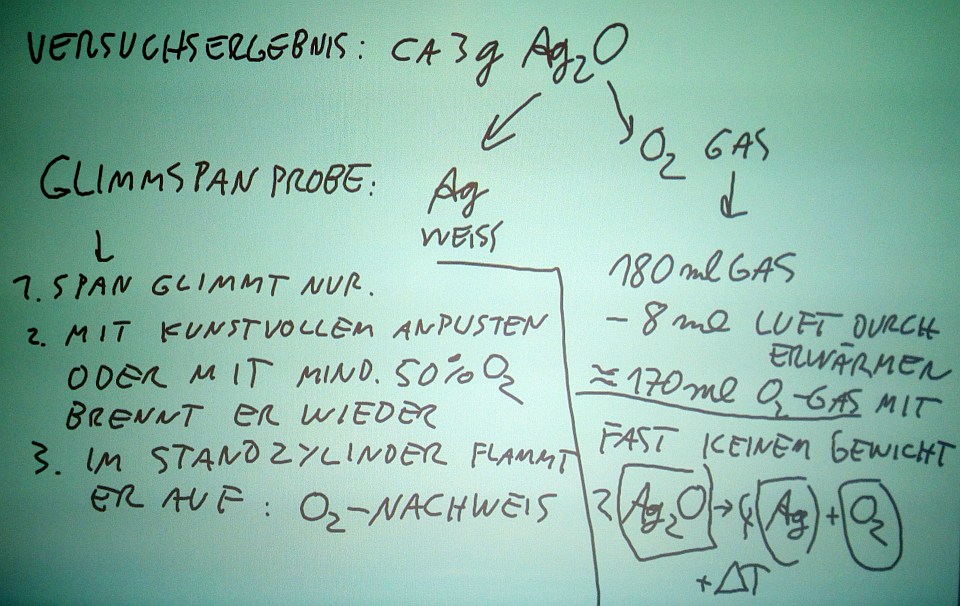 VERSUCHSERGEBNIS: CA 3g Ag₂O
O₂ GAS
GLIMMSPANPROBE:
Ag
WEISS
1. SPAN GLIMMT NUR.
2. MIT KUNSTVOLLEM ANPUSTEN
ODER MIT MIND. 50% O₂
BRENNT ER WIEDER
3. IM STANDZYLINDER FLAMMT
ER AUF: O₂-NACHWEIS
180 ml GAS
- 8 ml LUFT DURCH
ERWÄRMEN
≈ 170 ml O₂-GAS MIT
FAST KEINEM GEWICHT
2 Ag₂O → 4 Ag + O₂
+ΔT